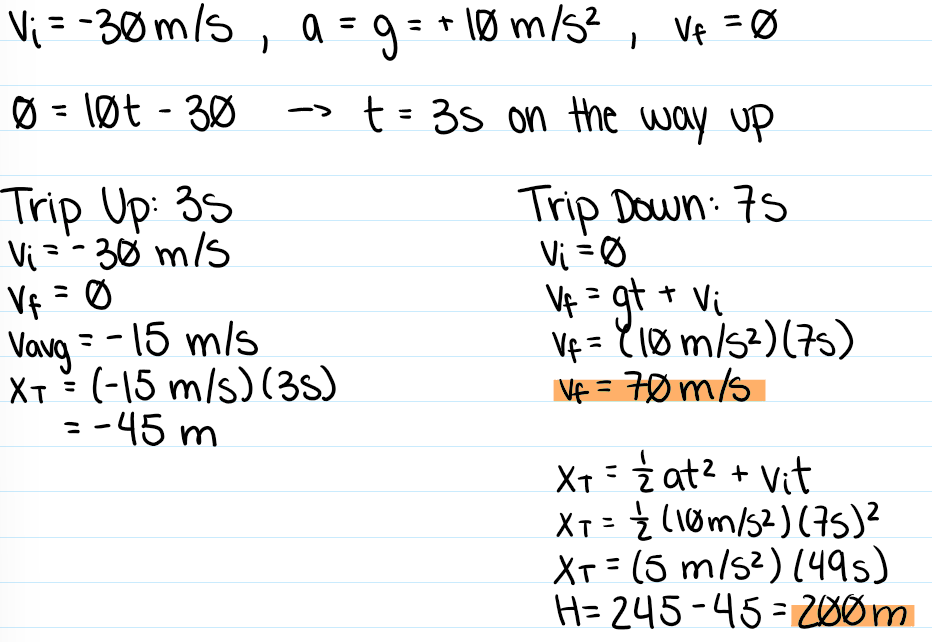 Vi = -30 m/s , a = g = + 10 m/s² , Vf = 0
0 = 10t - 30 -> t = 3s on the way up
Trip Up: 3s
Vi = - 30 m/s
Vf = 0
Vavg = -15 m/s
XT = (-15 m/s)(3s)
= -45 m
Trip Down: 7s
Vi = 0
Vf = gt + Vi
Vf = (10 m/s²)(7s)
Vf = 70 m/s
XT = ½ at² + Vit
XT = ½ (10m/s²)(7s)²
XT = (5 m/s²)(49s)
H = 245 - 45 = 200m